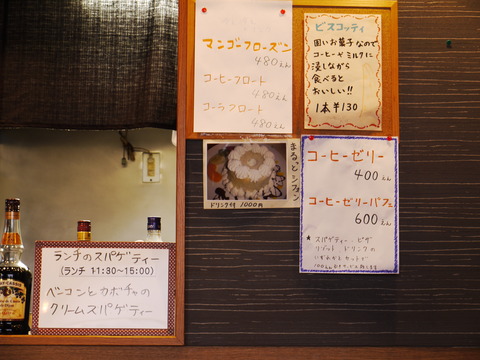 マンゴーフローズン
480えん
コーヒーフロート
480えん
コーラフロート
480えん
ビスコッティ
固いお菓子なので
コーヒーやミルクに
浸しながら
食べると
おいしい!!
1本¥130
まるごとシフォン
ドリンク付 1000円
コーヒーゼリー
400えん
コーヒーゼリーパフェ
600えん
★スパゲティー ピザ
リゾット ドリンクの
いずれかとセットで
ランチのスパゲティー
(ランチ 11:30~15:00)
ベーコンとカボチャの
クリームスパゲティー